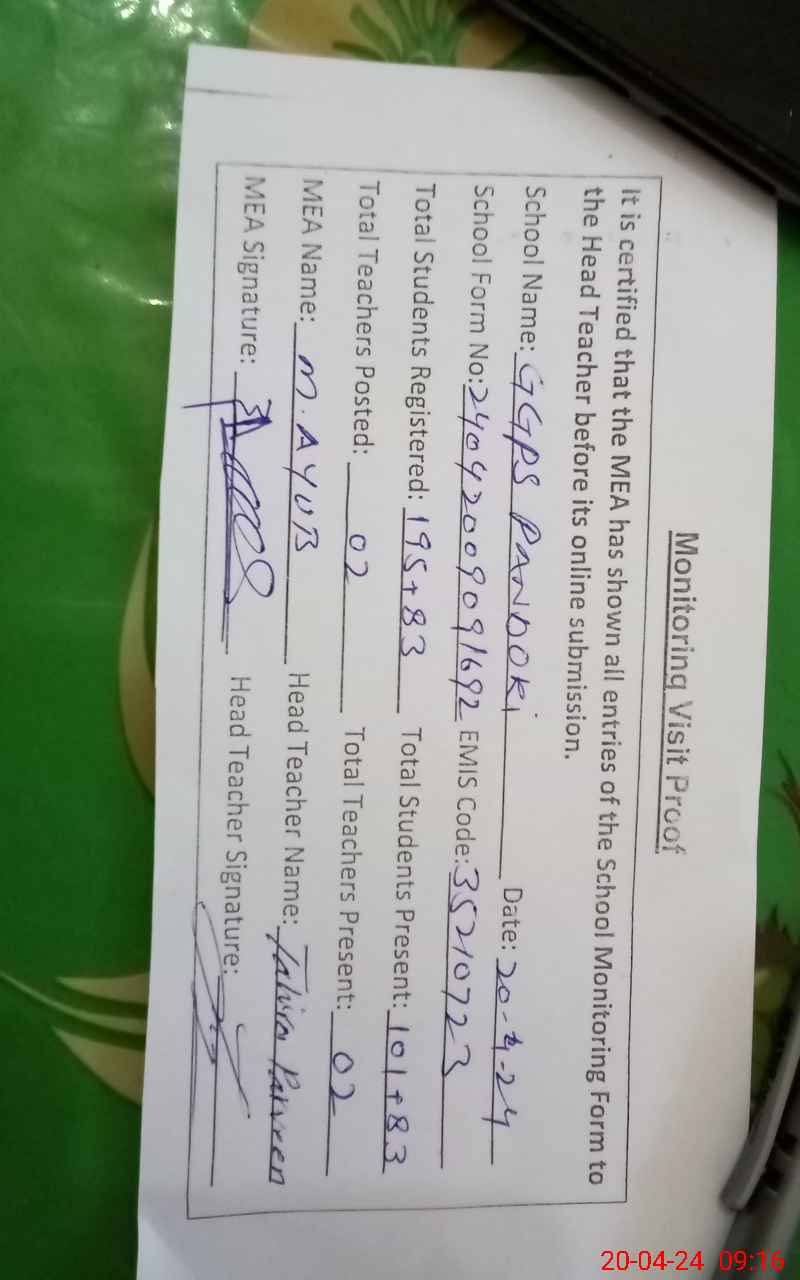 Monitoring Visit Proof
It is certified that the MEA has shown all entries of the School Monitoring Form to
the Head Teacher before its online submission.
School Name: GGPS PANDOKI Date: 20-4-24
School Form No: 24042009091692 EMIS Code: 35210723
Total Students Registered: 195+83 Total Students Present: 101+83
Total Teachers Posted: 02 Total Teachers Present: 02
MEA Name: M. AYUB Head Teacher Name: Parveen
MEA Signature: Head Teacher Signature:
20-04-24 09:16